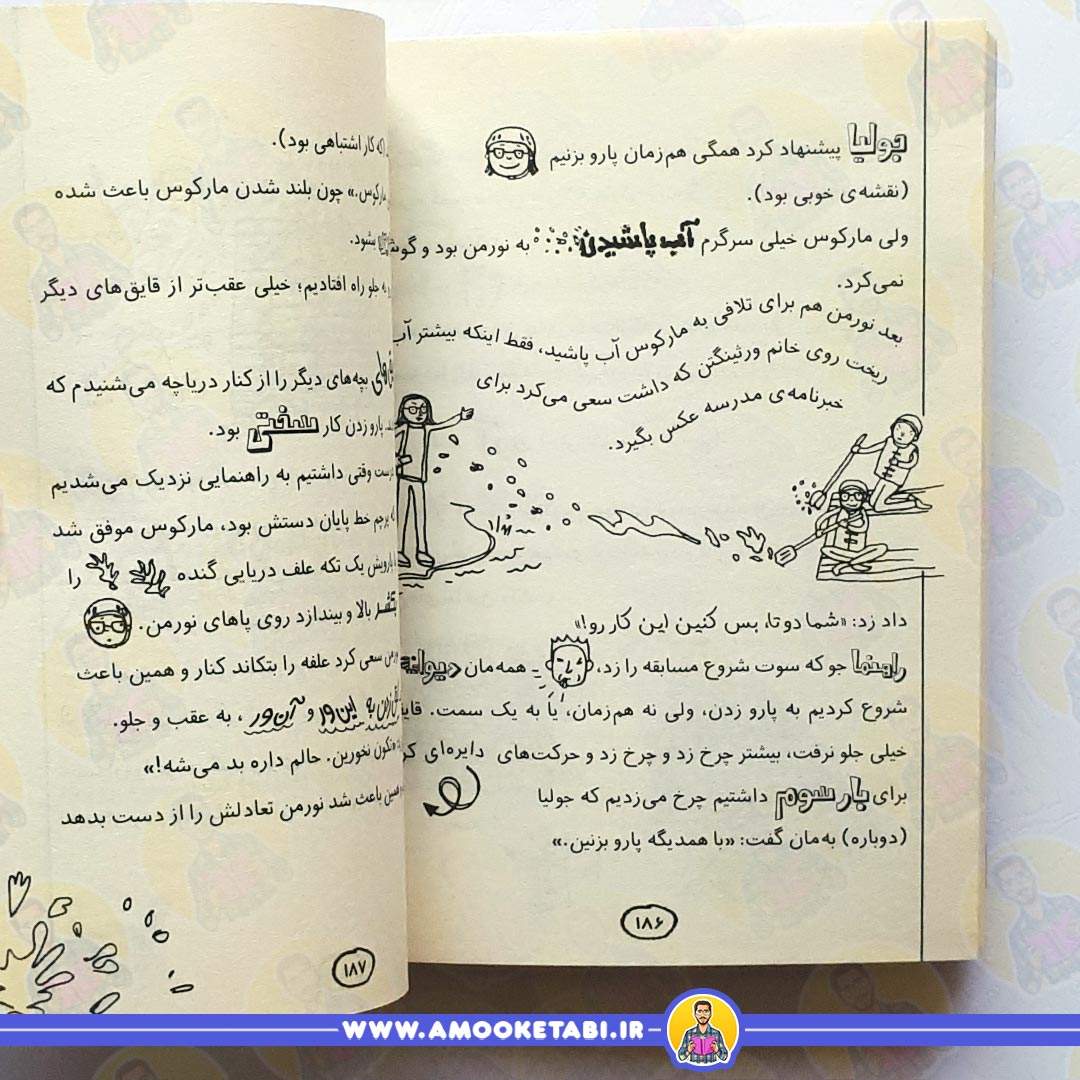 جولیا پیشنهاد کرد همگی هم‌زمان پارو بزنیم
(نقشه‌ی خوبی بود).
ولی مارکوس خیلی سرگرم آب پاشیدن به نورمن بود و گوش
نمی‌کرد.
بعد نورمن هم برای تلافی به مارکوس آب پاشید، فقط اینکه بیشتر آب
ریخت روی خانم ورثینگتن که داشت سعی می‌کرد برای
خبرنامه‌ی مدرسه عکس بگیرد.
داد زد: «شما دو تا، بس کنین این کار رو!»
راهنما جو که سوت شروع مسابقه را زد، همه‌مان دیوانه
شروع کردیم به پارو زدن، ولی نه هم‌زمان، یا به یک سمت. قایق
خیلی جلو نرفت، بیشتر چرخ زد و چرخ زد و حرکت‌های دایره‌ای
برای بار سوم داشتیم چرخ می‌زدیم که جولیا
(دوباره) به‌مان گفت: «با همدیگه پارو بزنین.»
۱۸۶
که کار اشتباهی بود).
مارکوس.» چون بلند شدن مارکوس باعث شده
بشود.
به جلو راه افتادیم؛ خیلی عقب‌تر از قایق‌های دیگر
بچه‌های دیگر را از کنار دریاچه می‌شنیدم که
پارو زدن کار سختی بود.
وقتی داشتیم به راهنمایی نزدیک می‌شدیم
پرچم خط پایان دستش بود، مارکوس موفق شد
پارویش یک تکه علف دریایی گنده را
بالا و بیندازد روی پاهای نورمن.
سعی کرد علفه را بتکاند کنار و همین باعث
به این‌ور و آن‌ور، به عقب و جلو.
«تکون نخورین. حالم داره بد می‌شه!»
همین باعث شد نورمن تعادلش را از دست بدهد
۱۸۷
WWW.AMOOKETABI.IR